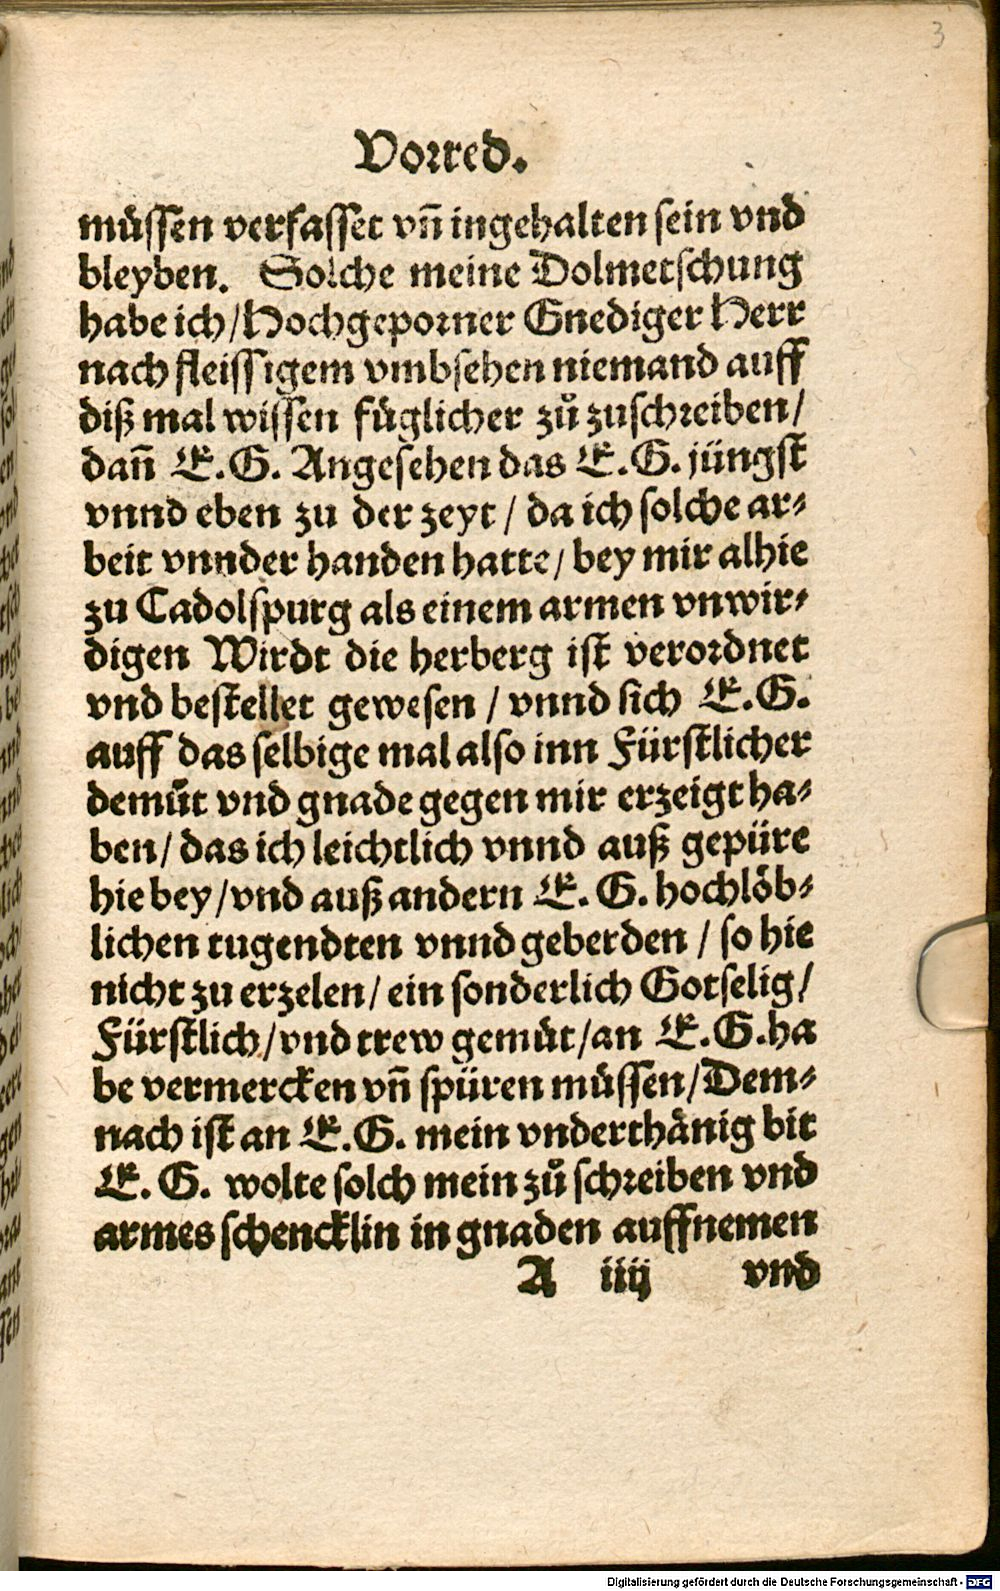 3
Vorred.
müssen verfasset vñ ingehalten sein vnd
bleyben. Solche meine Dolmetschung
habe ich/Hochgeporner Gnediger Herr
nach fleissigem vmbsehen niemand auff
diß mal wissen füglicher zů zuschreiben/
dañ E.G. Angesehen das E.G. jüngst
vnnd eben zu der zeyt / da ich solche ar-
beit vnnder handen hatte/ bey mir alhie
zu Cadolspurg als einem armen vnwir-
digen Wirdt die herberg ist verordnet
vnd bestellet gewesen / vnnd sich E.G.
auff das selbige mal also inn Fürstlicher
demůt vnd gnade gegen mir erzeigt ha-
ben/ das ich leichtlich vnnd auß gepüre
hie bey/vnd auß andern E. G. hochlöb-
lichen tugendten vnnd geberden / so hie
nicht zu erzelen/ ein sonderlich Gotselig/
Fürstlich/vnd trew gemüt/an E.G.ha
be vermercken vñ spüren müssen/Dem-
nach ist an E.G. mein vnderthänig bit
E. G. wolte solch mein zů schreiben vnd
armes schencklin in gnaden auffnemen
A iiij vnd
Digitalisierung gefördert durch die Deutsche Forschungsgemeinschaft - DFG